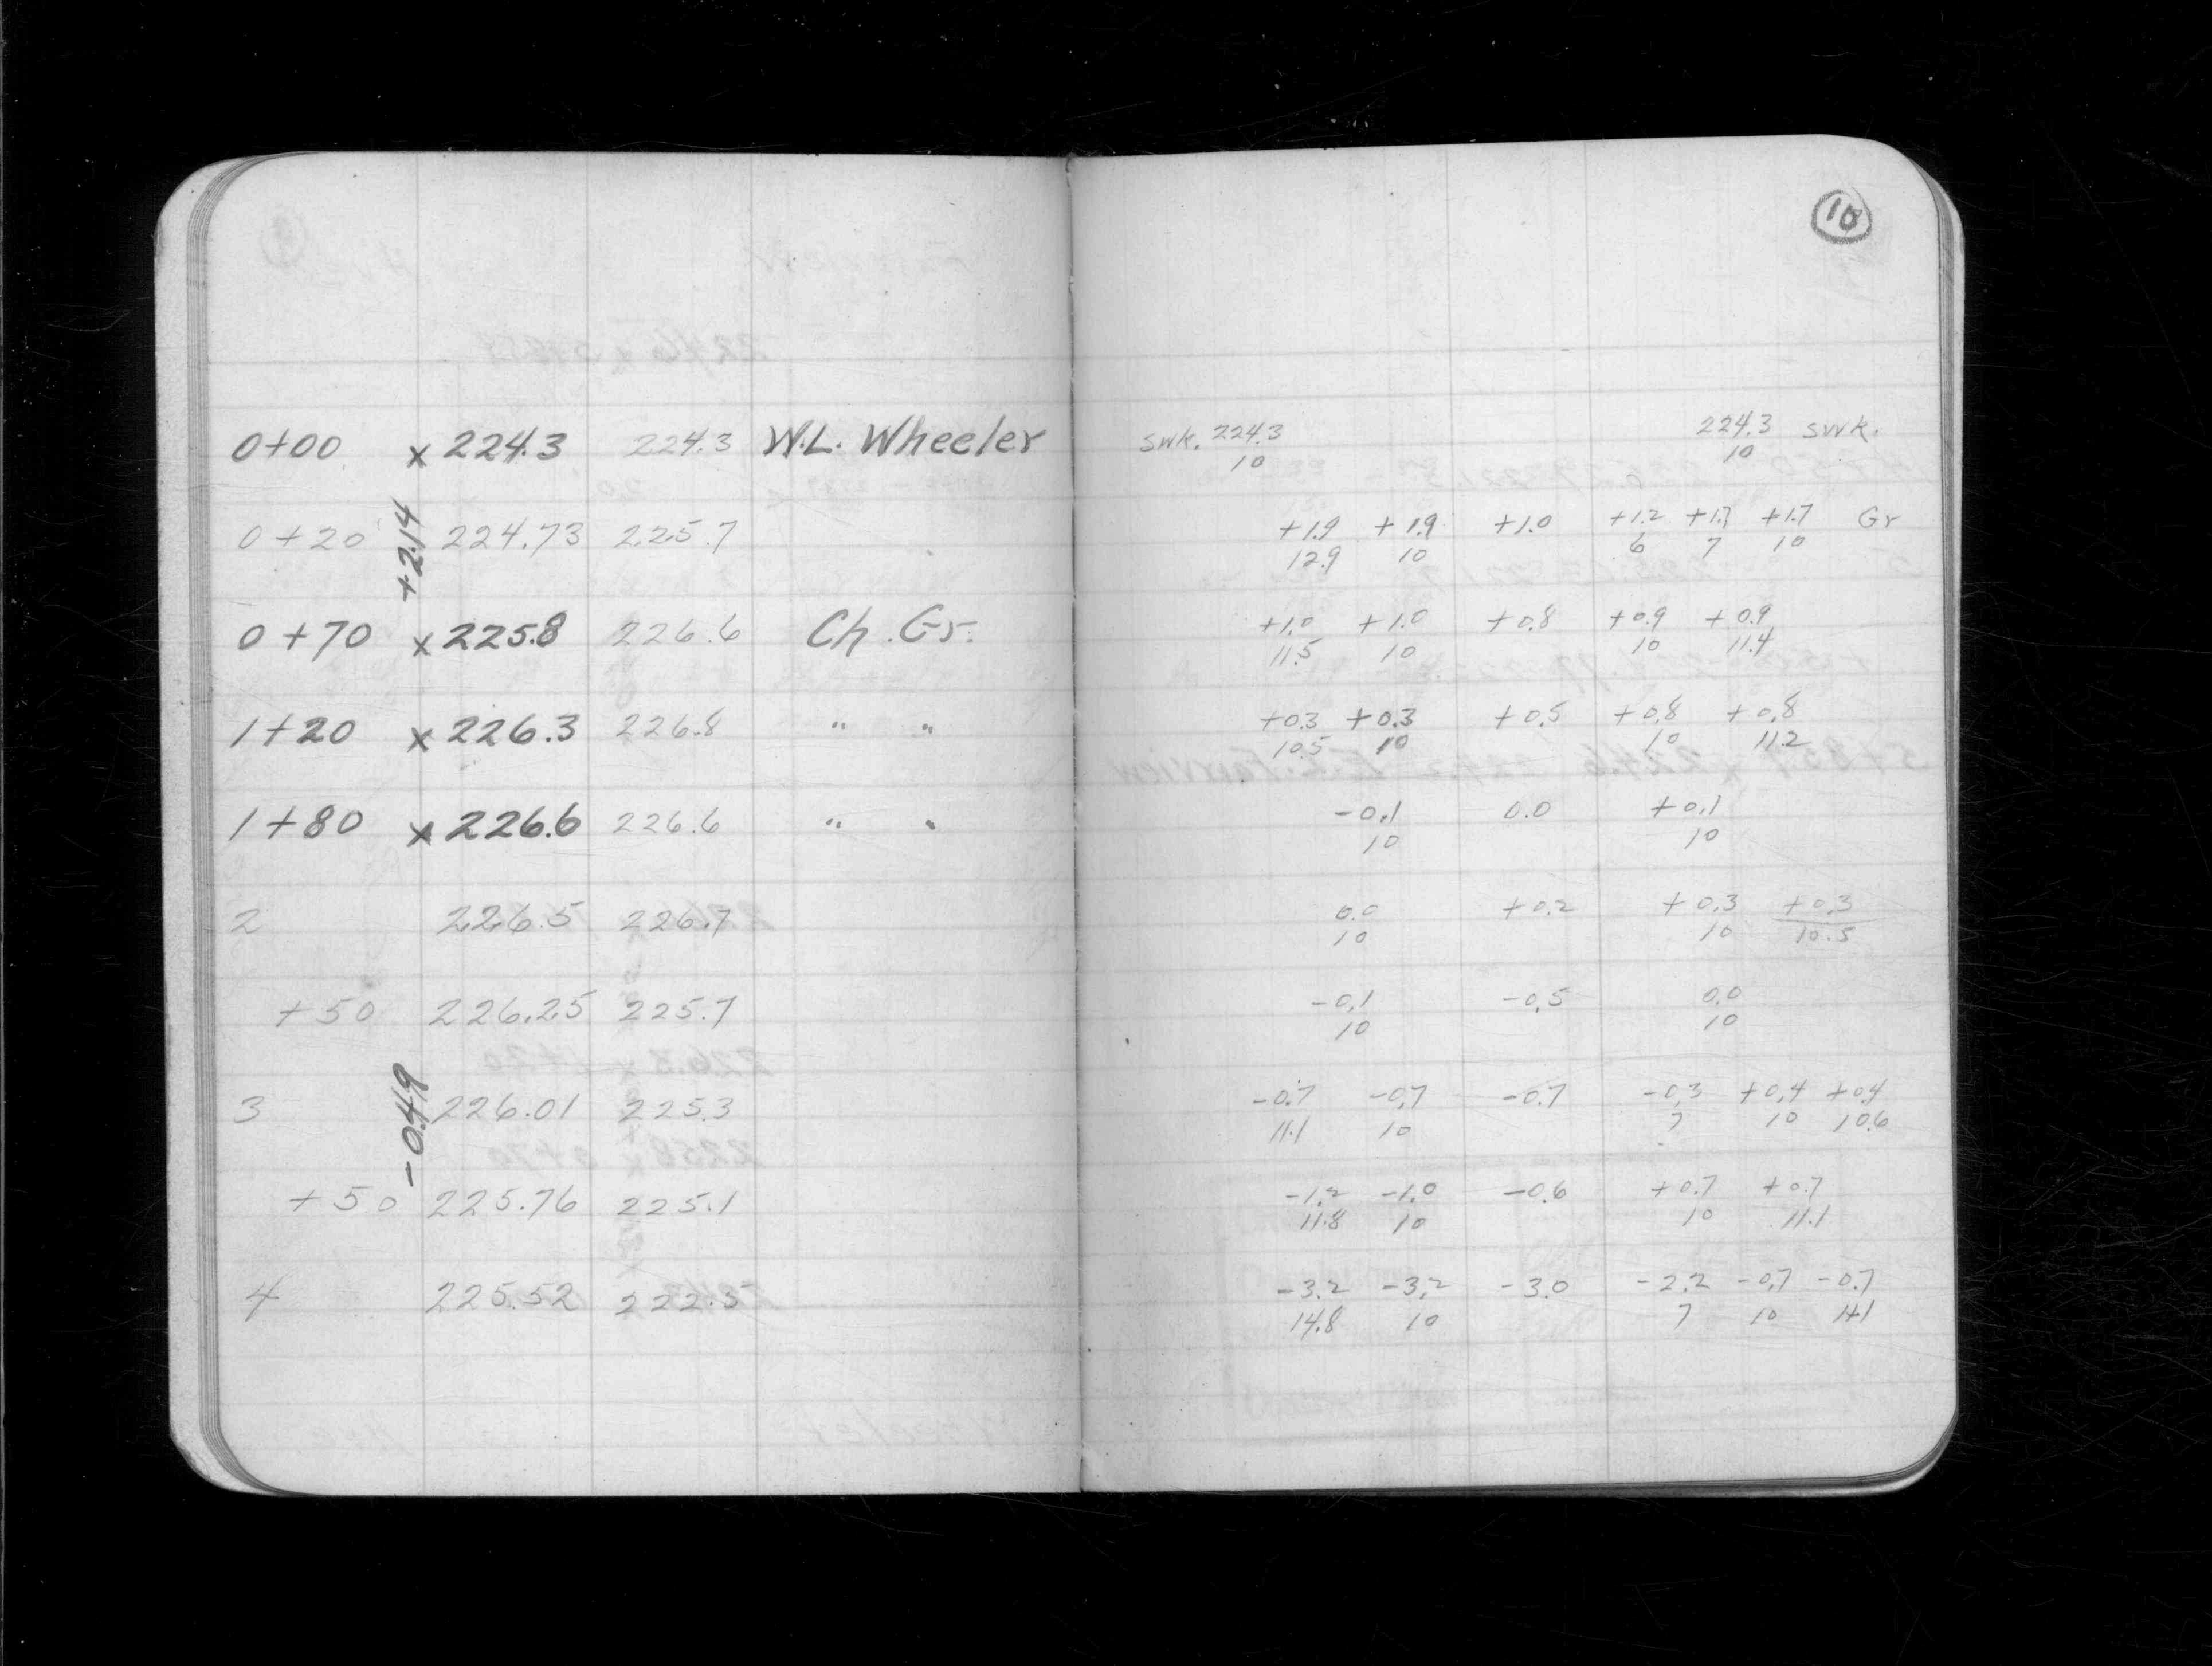 10
0+00 x 224.3 224.3 W.L. Wheeler swk. 224.3 224.3 swk.
10 10
+2.14
0+20 224.73 225.7 +1.9 +1.9 +1.0 +1.2 +1.7 +1.7 Gr
12.9 10 6 7 10
0+70 x 225.8 226.6 Ch. Gr. +1.0 +1.0 +0.8 +0.9 +0.9
11.5 10 10 11.4
1+20 x 226.3 226.8 " " +0.3 +0.3 +0.5 +0.8 +0.8
10.5 10 10 11.2
1+80 x 226.6 226.6 " " -0.1 0.0 +0.1
10 10
2 226.5 226.7 0.0 +0.2 +0.3 +0.3
10 10 10.5
+50 226.25 225.7 -0.1 -0.5 0.0
10 10
-0.49
3 226.01 225.3 -0.7 -0.7 -0.7 -0.3 +0.4 +0.4
11.1 10 7 10 10.6
+50 225.76 225.1 -1.2 -1.0 -0.6 +0.7 +0.7
11.8 10 10 11.1
4 225.52 222.5 -3.2 -3.2 -3.0 -2.2 -0.7 -0.7
14.8 10 7 10 11.1